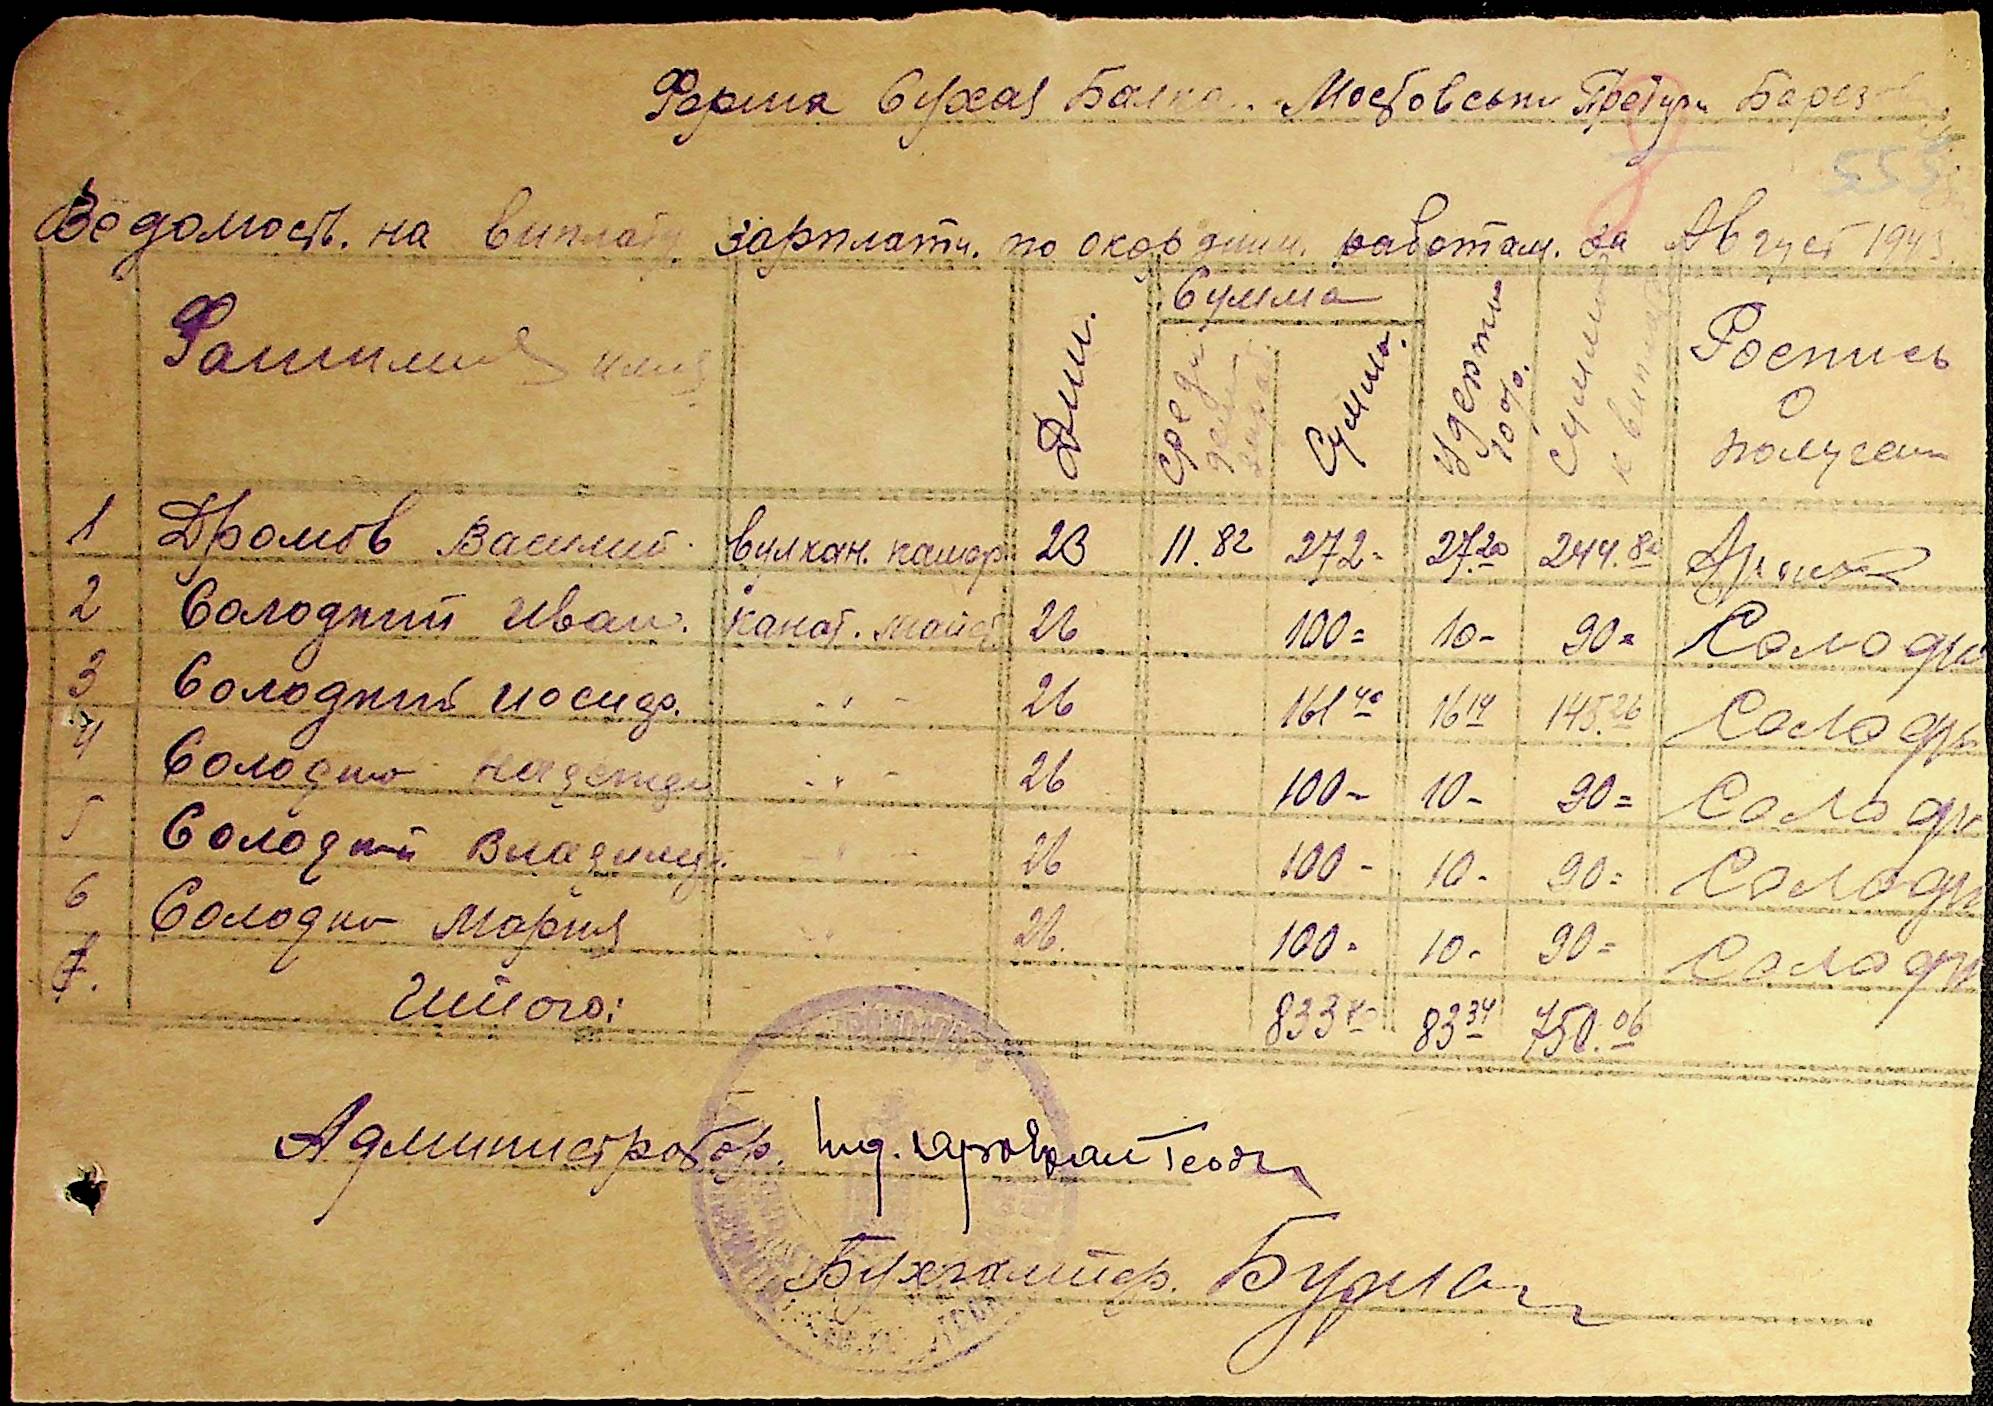 Ферма Сухая Балка. Мостовськи Претуры Барез
555
Ведомость. на виплату зарплати. по окордним. работам. за Август 1943
Фамилия имя
Дни.
Сумма
Средн дем зараб.
Сумма.
Удержти 10%.
Сумма к виплате
Роспись о получении
1 Дромов Василий. вулкан. камер. 23 11.82 272- 27.20 244.80
2 Солодкий Иван. канат. майст 26 100= 10- 90=
3 Солодкий Иосиф. -"- 26 161 40 16 14 145.26 Солодк
4 Солодко Надежда -"- 26 100- 10- 90= Солодк
5 Солодкий Владимир. -"- 26 100- 10- 90= Солодк
6 Солодко Мария " 26. 100- 10- 90= Солодк
7. Итого: 833 40 83 34 750.06
Администратор. Инд.
Бухгалтер.